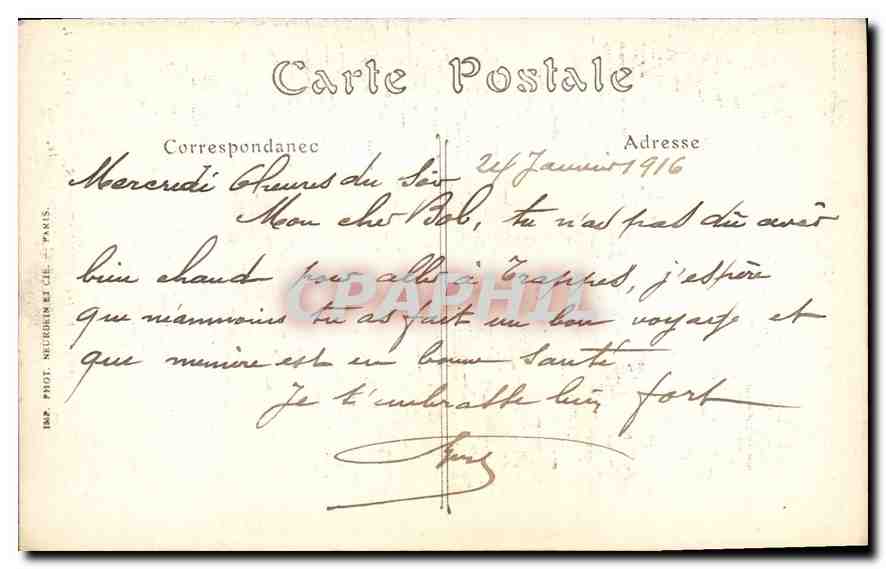 Carte Postale
Correspondanec
Adresse
Mercredi 6 heures du Soir 24 Janvier 1916
Mon cher Bob, tu n'as pas dû avoir
bien chaud pour aller à Trappes, j'espère
que néanmoins tu as fait un bon voyage et
que mémère est en bonne santé.
Je t'embrasse bien fort
IMP. PHOT. NEURDEIN ET CIE. — PARIS.
CPAPHIL